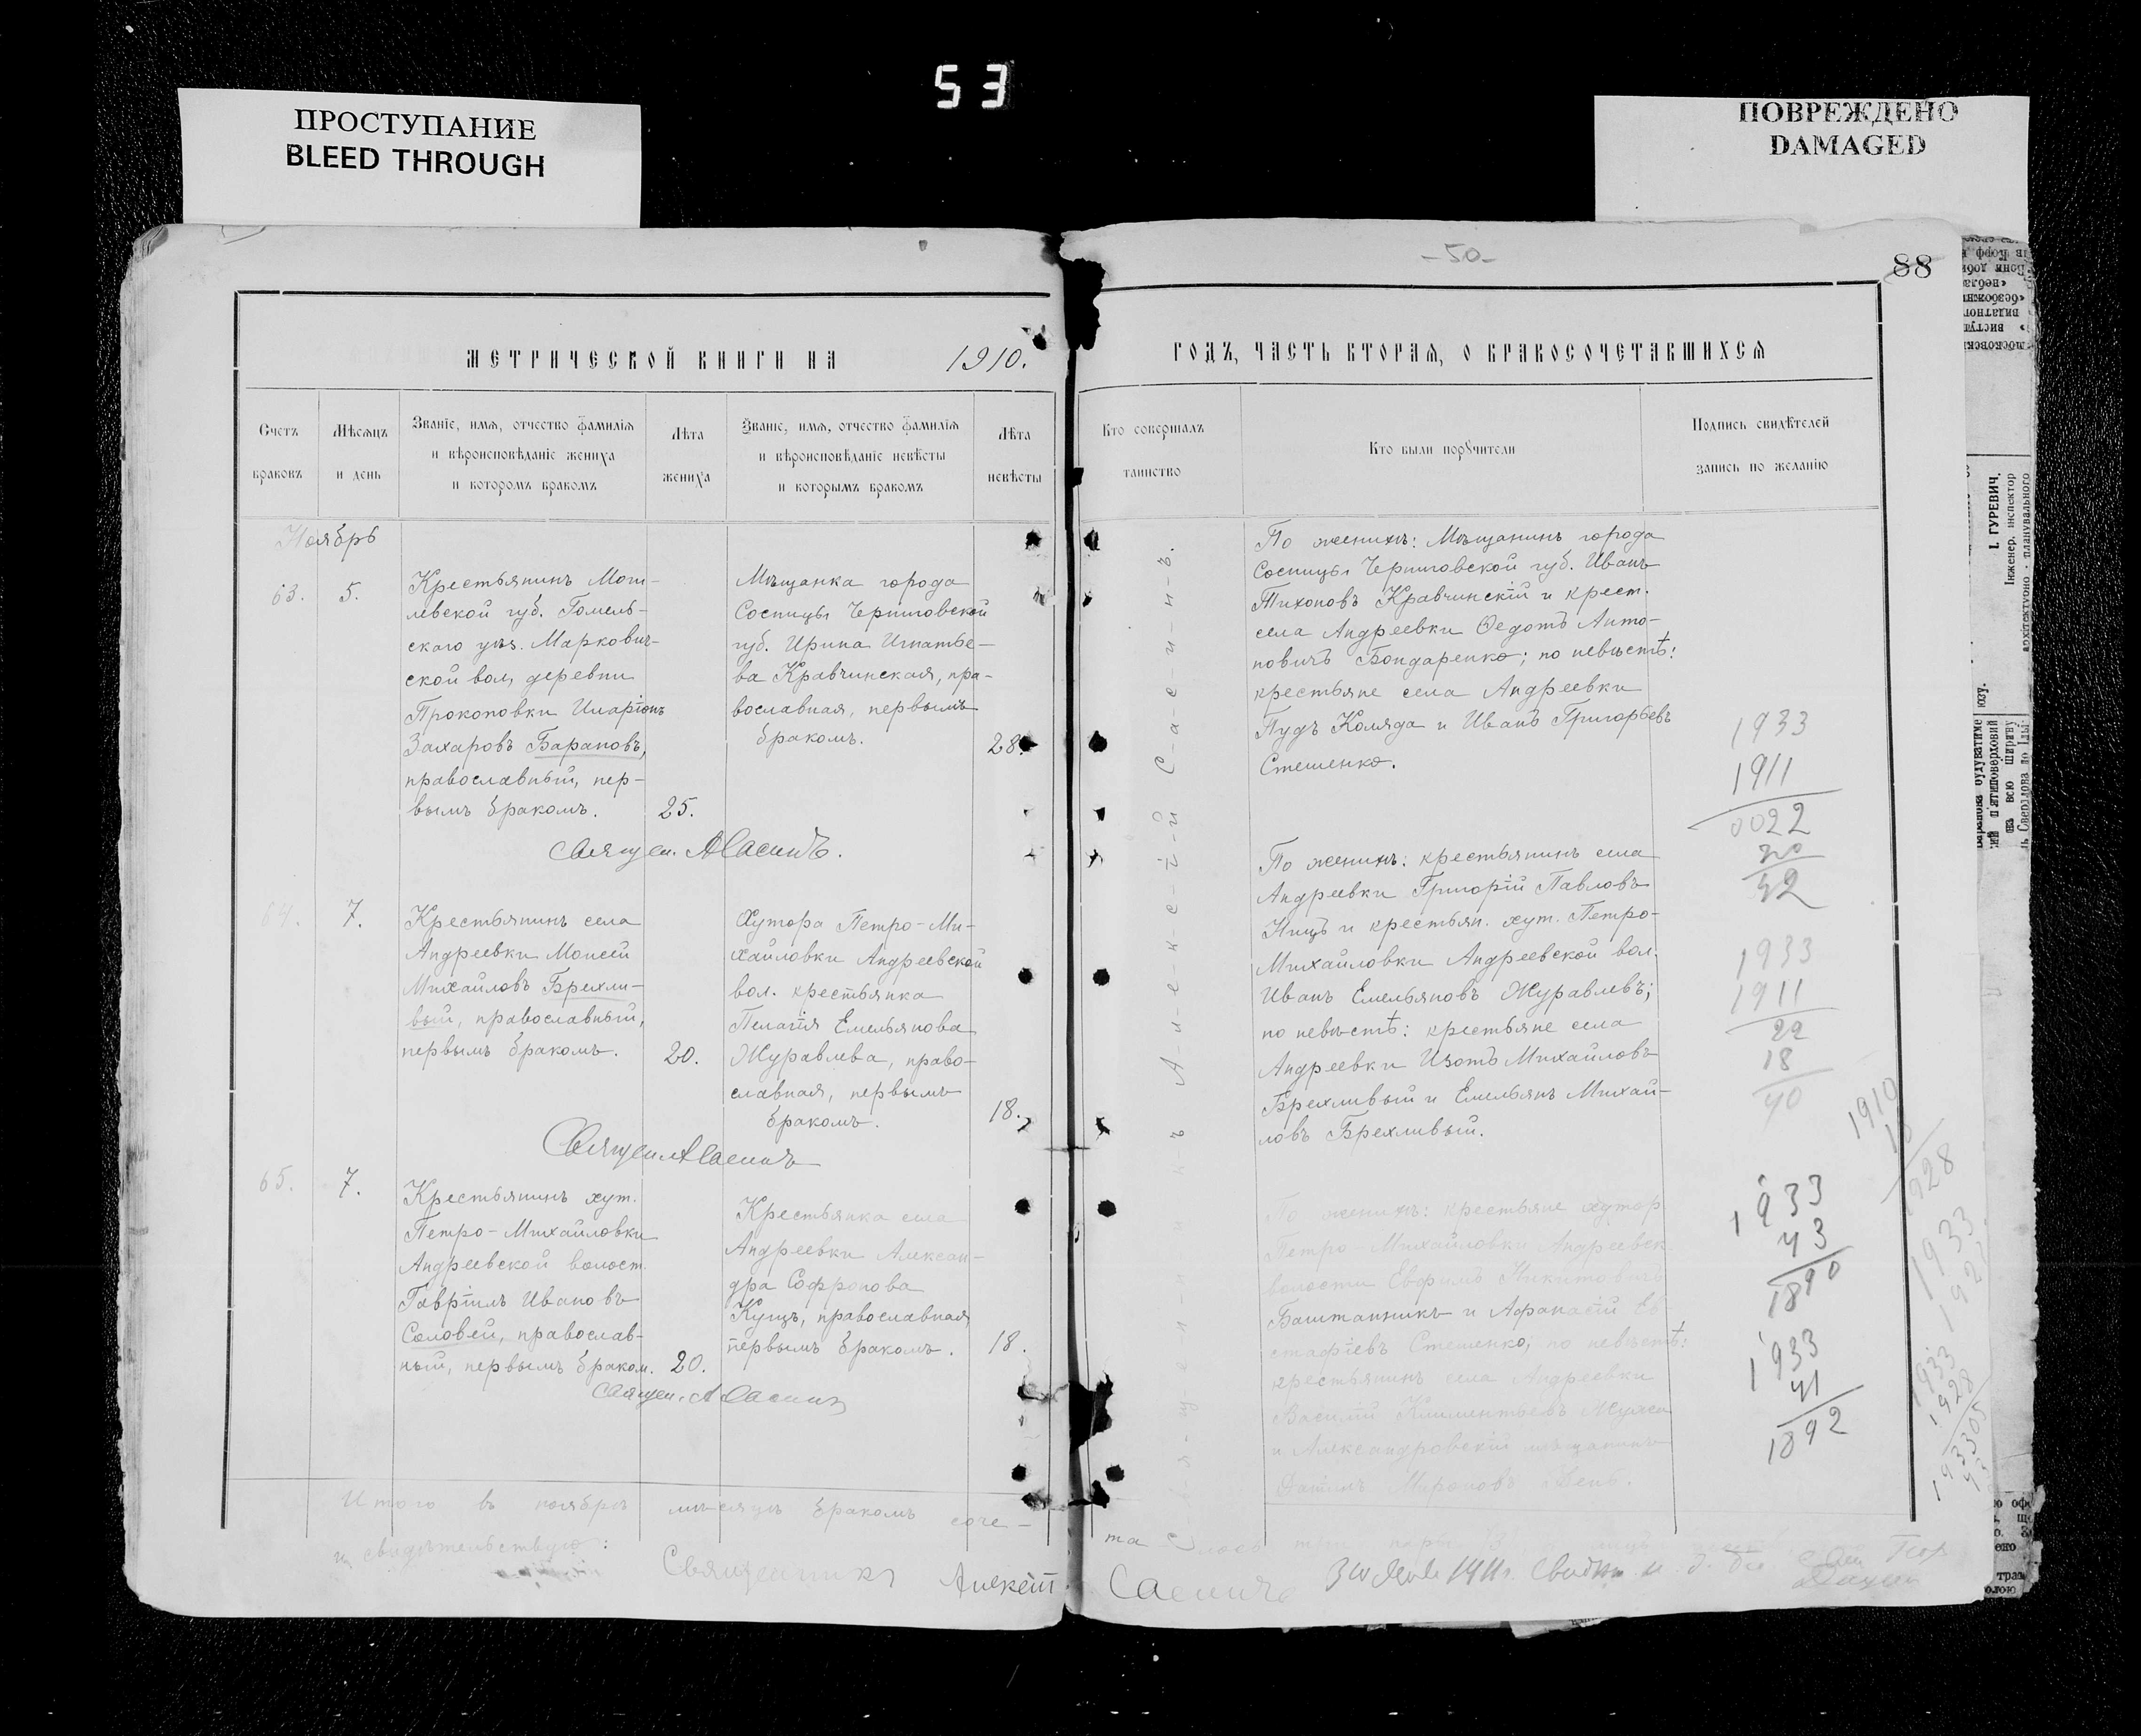 53
ПРОСТУПАНИЕ
BLEED THROUGH
ПОВРЕЖДЕНО
DAMAGED
-50-
88
МЕТРИЧЕСКОЙ КНИГИ НА 1910.
ГОДЪ, ЧАСТЬ ВТОРАЯ, О БРАКОСОЧЕТАВШИХСЯ
Счетъ
браковъ
Мѣсяцъ
и день
Званіе, имя, отчество фамилія
и вѣроисповѣданіе жениха
и которомъ бракомъ
Лѣта
жениха
Званіе, имя, отчество фамилія
и вѣроисповѣданіе невѣсты
и которымъ бракомъ
Лѣта
невѣсты
Кто совершалъ
таинство
Кто были поручители
Подпись свидѣтелей
запись по желанію
Ноябрь
63.
5.
Крестьянинъ Моги-
левской губ. Гомель-
скаго уѣз. Маркович-
ской вол, деревни
Прокоповки Иларіонъ
Захаровъ Барановъ,
православный, пер-
вымъ бракомъ.
25.
Мѣщанка города
Сосницы Черниговской
губ. Ирина Игнатье-
ва Кравчинская, пра-
вославная, первымъ
бракомъ.
28.
Священ. АСаенинъ.
По женихѣ: Мѣщанинъ города
Сосницы Черниговской губ. Иванъ
Тихоновъ Кравчинскій и крест.
села Андреевки Ѳедотъ Анто-
новичъ Бондаренко; по невѣстѣ:
крестьяне села Андреевки
Пудъ Коляда и Иванъ Григорьевъ
Стешенко.
64.
7.
Крестьянинъ села
Андреевки Моисей
Михайловъ Брехли-
вый, православный,
первымъ бракомъ.
20.
Хутора Петро-Ми-
хайловки Андреевской
вол. крестьянка
Пелагія Емельянова
Журавлева, право-
славная, первымъ
бракомъ.
18.
Священ. АСаенинъ
По женихѣ: крестьянинъ села
Андреевки Григорій Павловъ
Кицъ и крестьян. хут. Петро-
Михайловки Андреевской вол.
Иванъ Емельяновъ Журавлевъ;
по невѣстѣ: крестьяне села
Андреевки Изотъ Михайловъ
Брехливый и Емельянъ Михай-
ловъ Брехливый.
65.
7.
Крестьянинъ хут.
Петро-Михайловки
Андреевской волост.
Гавріилъ Ивановъ
Соловей, православ-
ный, первымъ браком.
20.
Крестьянка села
Андреевки Алексан-
дра Софронова
Куцъ, православная
первымъ бракомъ.
18.
Священ. АСаенинъ
По женихѣ: крестьяне хутор
Петро-Михайловки Андреевск
волости Евфимъ Никитовичъ
Баштанникъ и Афанасій Ев-
стафіевъ Стешенко; по невѣстѣ:
крестьянинъ села Андреевки
Василій Климентьевъ
и Александровскій мѣщанинъ
Мироновъ
С-в-я-щ-е-н-н-и-к-ъ А-л-е-к-с-і-й С-а-е-н-и-н-ъ.
1933
1911
0022
20
42
1933
1911
22
18
40
1933
43
1890
1933
41
1892
1910
18
1928
1933
1933
1928
Итого въ ноябрѣ мѣсяцѣ бракомъ соче-
та
свидѣтельствую:
Священникъ Алексій Саенинъ
І. ГУРЕВИЧ.
Інженер. інспектор